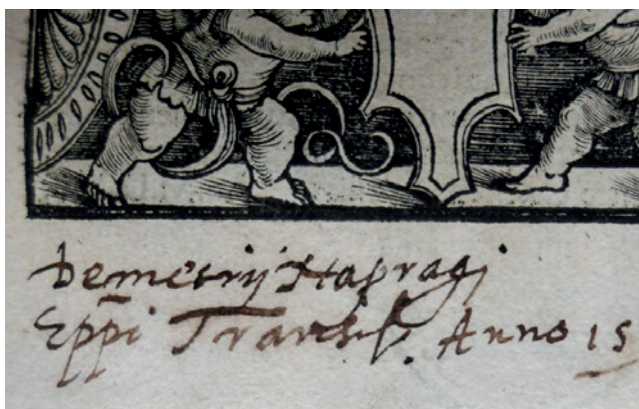 Demetrij Napragj
Epp̄i Transs. Anno 15